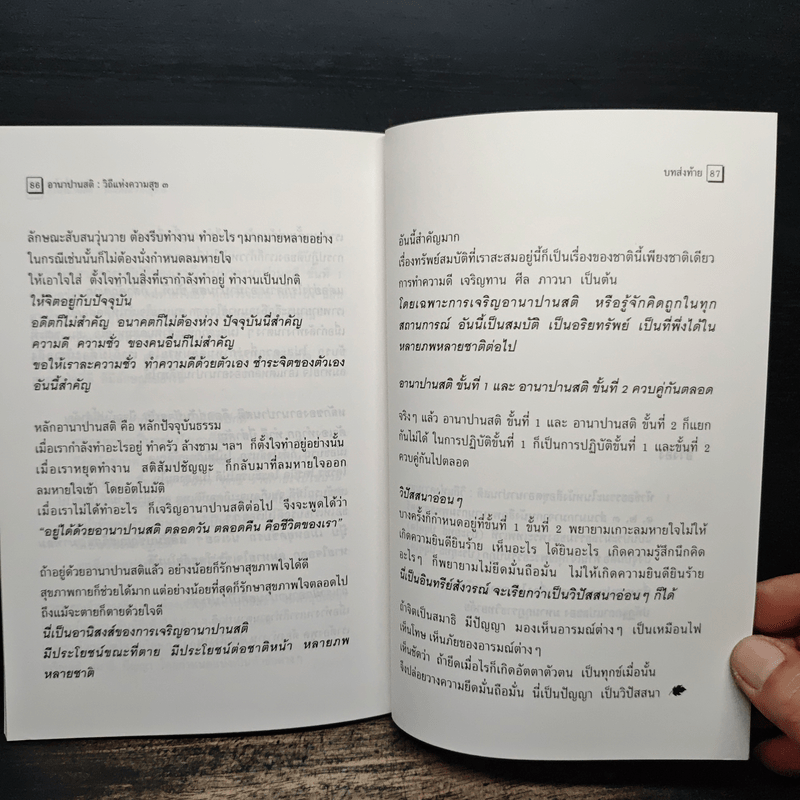 86 อานาปานสติ : วิถีแห่งความสุข ๓
ลักษณะสับสนวุ่นวาย ต้องรีบทำงาน ทำอะไร ๆ มากมายหลายอย่าง
ในกรณีเช่นนั้นก็ไม่ต้องนั่งกำหนดลมหายใจ
ให้เอาใจใส่ ตั้งใจทำในสิ่งที่เรากำลังทำอยู่ ทำงานเป็นปกติ
ให้จิตอยู่กับปัจจุบัน
อดีตก็ไม่สำคัญ อนาคตก็ไม่ต้องห่วง ปัจจุบันนี้สำคัญ
ความดี ความชั่ว ของคนอื่นก็ไม่สำคัญ
ขอให้เราละความชั่ว ทำความดีด้วยตัวเอง ชำระจิตของตัวเอง
อันนี้สำคัญ
หลักอานาปานสติ คือ หลักปัจจุบันธรรม
เมื่อเรากำลังทำอะไรอยู่ ทำครัว ล้างชาม ฯลฯ ก็ตั้งใจทำอยู่อย่างนั้น
เมื่อเราหยุดทำงาน สติสัมปชัญญะ ก็กลับมาที่ลมหายใจออก
ลมหายใจเข้า โดยอัตโนมัติ
เมื่อเราไม่ได้ทำอะไร ก็เจริญอานาปานสติต่อไป จึงจะพูดได้ว่า
“อยู่ได้ด้วยอานาปานสติ ตลอดวัน ตลอดคืน คือชีวิตของเรา”
ถ้าอยู่ด้วยอานาปานสติแล้ว อย่างน้อยก็รักษาสุขภาพใจได้ดี
สุขภาพกายก็ช่วยได้มาก แต่อย่างน้อยที่สุดก็รักษาสุขภาพใจตลอดไป
ถึงแม้จะตายก็ตายด้วยใจดี
นี่เป็นอานิสงส์ของการเจริญอานาปานสติ
มีประโยชน์ขณะที่ตาย มีประโยชน์ต่อชาติหน้า หลายภพ
หลายชาติ
บทส่งท้าย 87
อันนี้สำคัญมาก
เรื่องทรัพย์สมบัติที่เราสะสมอยู่นี้ก็เป็นเรื่องของชาตินี้เพียงชาติเดียว
การทำความดี เจริญทาน ศีล ภาวนา เป็นต้น
โดยเฉพาะการเจริญอานาปานสติ หรือรู้จักคิดถูกในทุก
สถานการณ์ อันนี้เป็นสมบัติ เป็นอริยทรัพย์ เป็นที่พึ่งได้ใน
หลายภพหลายชาติต่อไป
อานาปานสติ ขั้นที่ 1 และ อานาปานสติ ขั้นที่ 2 ควบคู่กันตลอด
จริงๆ แล้ว อานาปานสติ ขั้นที่ 1 และ อานาปานสติ ขั้นที่ 2 ก็แยก
กันไม่ได้ ในการปฏิบัติขั้นที่ 1 ก็เป็นการปฏิบัติขั้นที่ 1 และขั้นที่ 2
ควบคู่กันไปตลอด
วิปัสสนาอ่อน ๆ
บางครั้งก็กำหนดอยู่ที่ขั้นที่ 1 ขั้นที่ 2 พยายามเกาะลมหายใจไม่ให้
เกิดความยินดียินร้าย เห็นอะไร ได้ยินอะไร เกิดความรู้สึกนึกคิด
อะไรๆ ก็พยายามไม่ยึดมั่นถือมั่น ไม่ให้เกิดความยินดียินร้าย
นี่เป็นอินทรีย์สังวรณ์ จะเรียกว่าเป็นวิปัสสนาอ่อน ๆ ก็ได้
ถ้าจิตเป็นสมาธิ มีปัญญา มองเห็นอารมณ์ต่างๆ เป็นเหมือนไฟ
เห็นโทษ เห็นภัยของอารมณ์ต่างๆ
เห็นชัดว่า ถ้ายึดเมื่อไรก็เกิดอัตตาตัวตน เป็นทุกข์เมื่อนั้น
จึงปล่อยวางความยึดมั่นถือมั่น นี่เป็นปัญญา เป็นวิปัสสนา